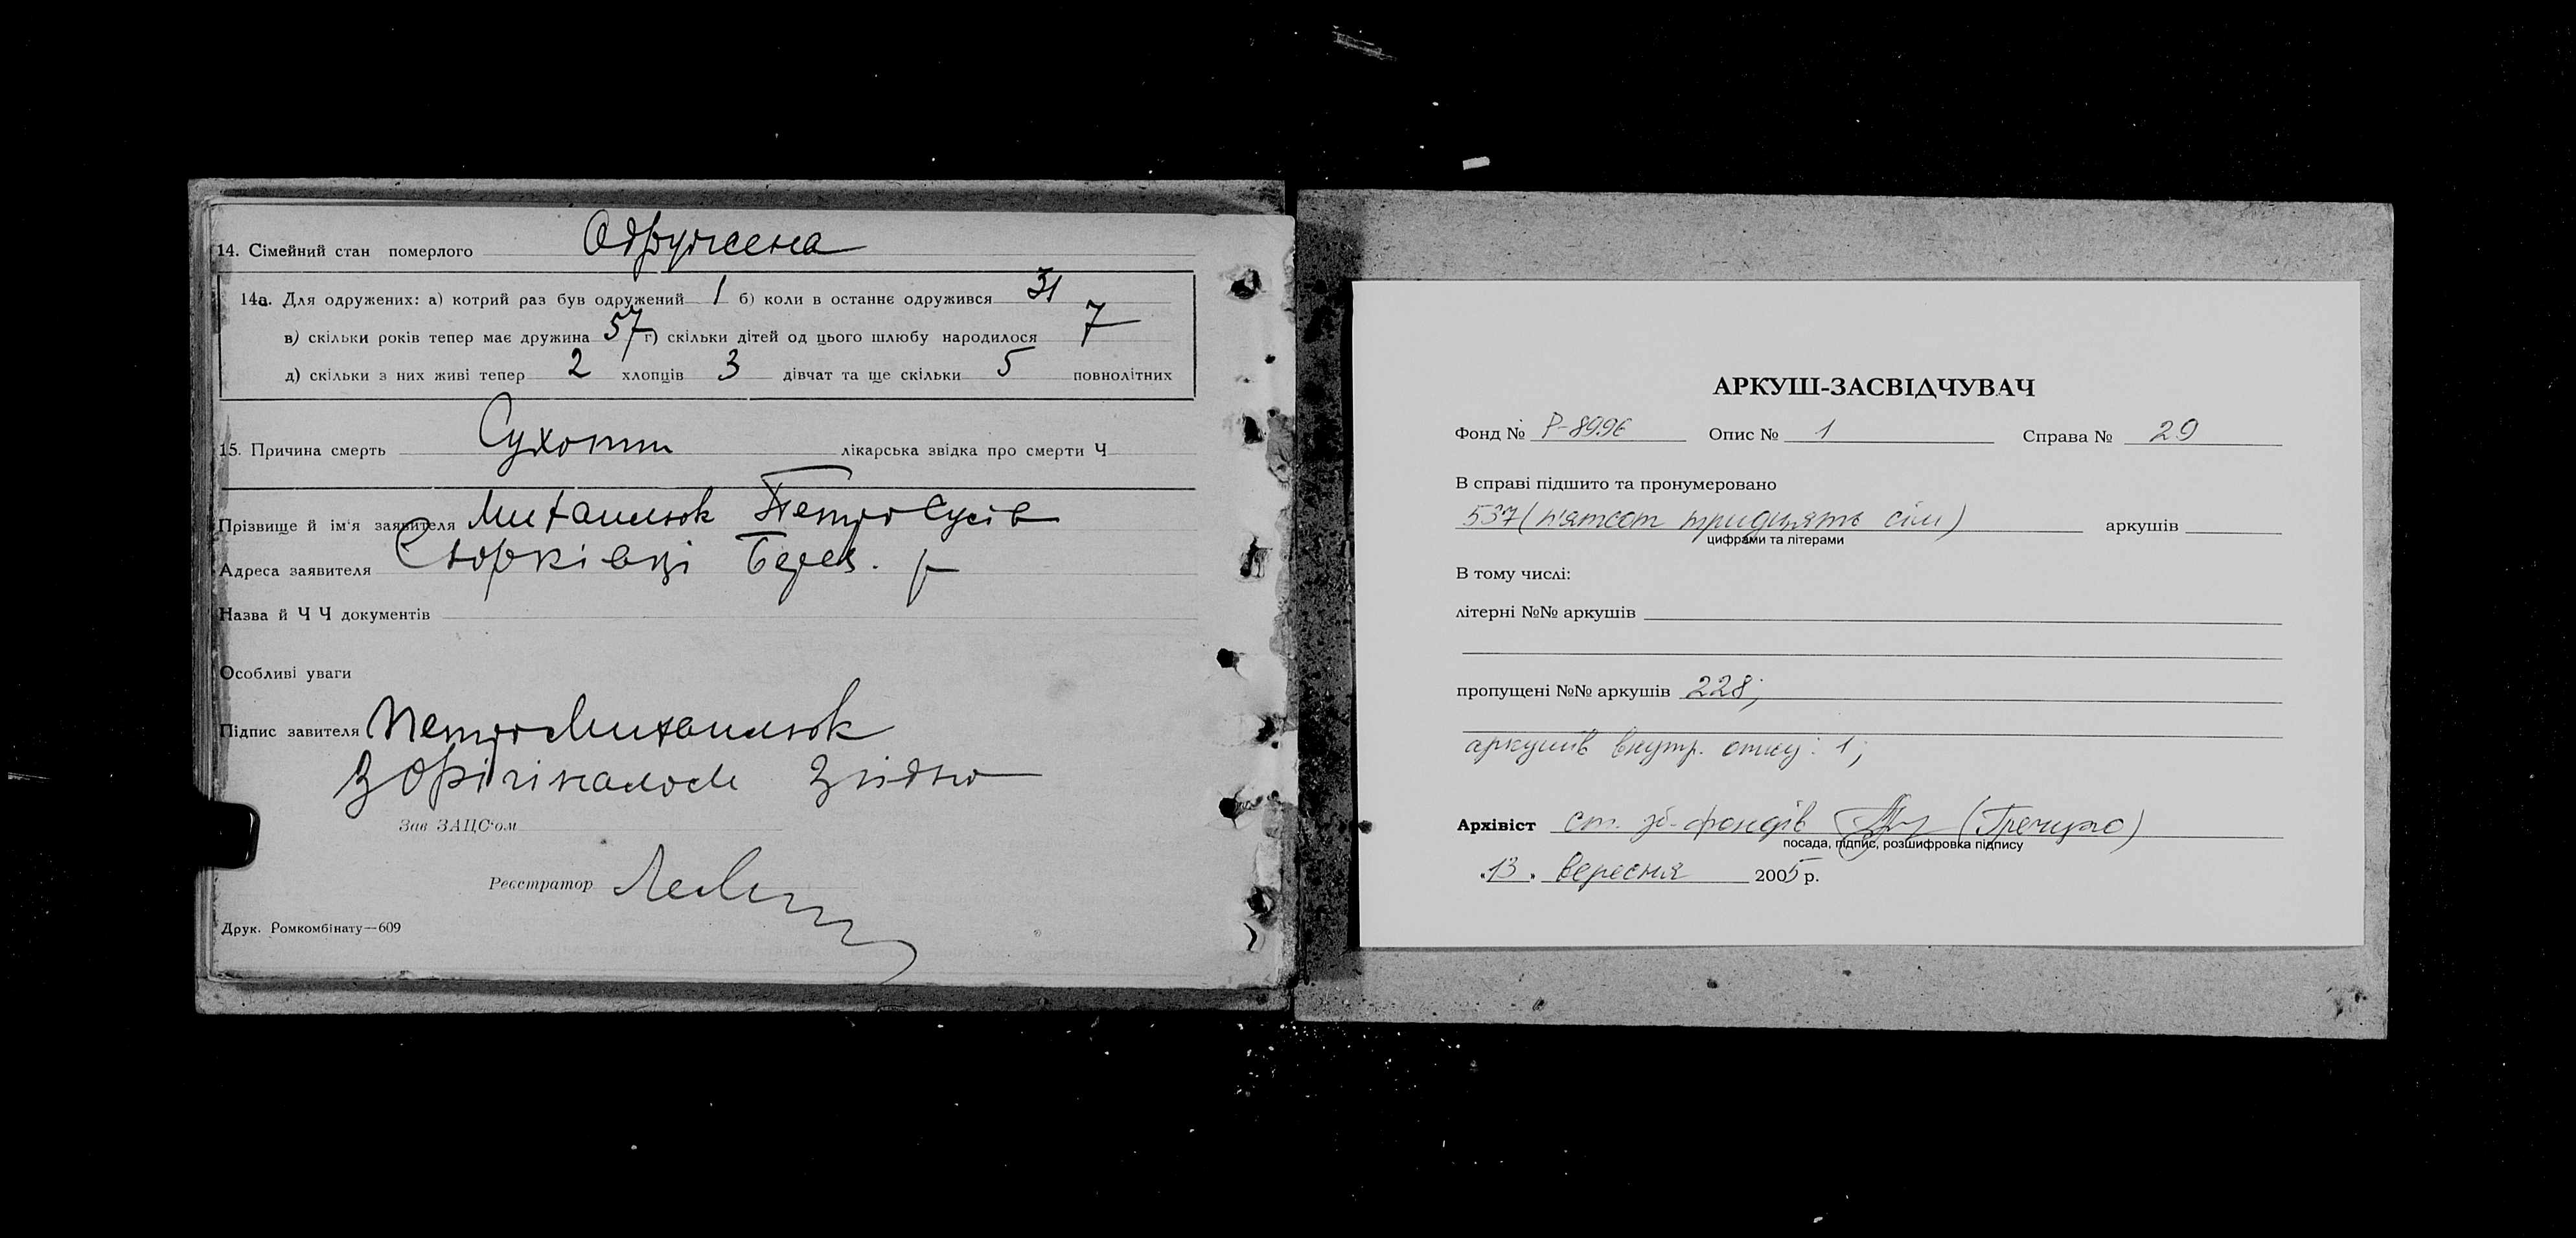 14. Сімейний стан померлого Одружена
14а. Для одружених: а) котрий раз був одружений 1 б) коли в останнє одружився 31
в) скільки років тепер має дружина 57 г) скільки дітей од цього шлюбу народилося 7
д) скільки з них живі тепер 2 хлопців 3 дівчат та ще скільки 5 повнолітних
15. Причина смерть Сухоти лікарська звідка про смерти Ч
Прізвище й ім'я заявителя Михаилюк Петро
Адреса заявителя Сюрківці Берез. р
Назва й Ч Ч документів
Особливі уваги
Підпис завителя Петро Михаилюк
З орігіналом згідно
Зав ЗАЦС'ом
Реєстратор
Друк. Ромкомбінату—609
АРКУШ-ЗАСВІДЧУВАЧ
Фонд № Р-8996 Опис № 1 Справа № 29
В справі підшито та пронумеровано
537 (пятсот тридцять сім) аркушів
цифрами та літерами
В тому числі:
літерні №№ аркушів
пропущені №№ аркушів 228;
аркушів внутр. опису: 1;
Архівіст ст. зб. фондів (Гречухо)
посада, підпис, розшифровка підпису
"13" вересня 2005 р.